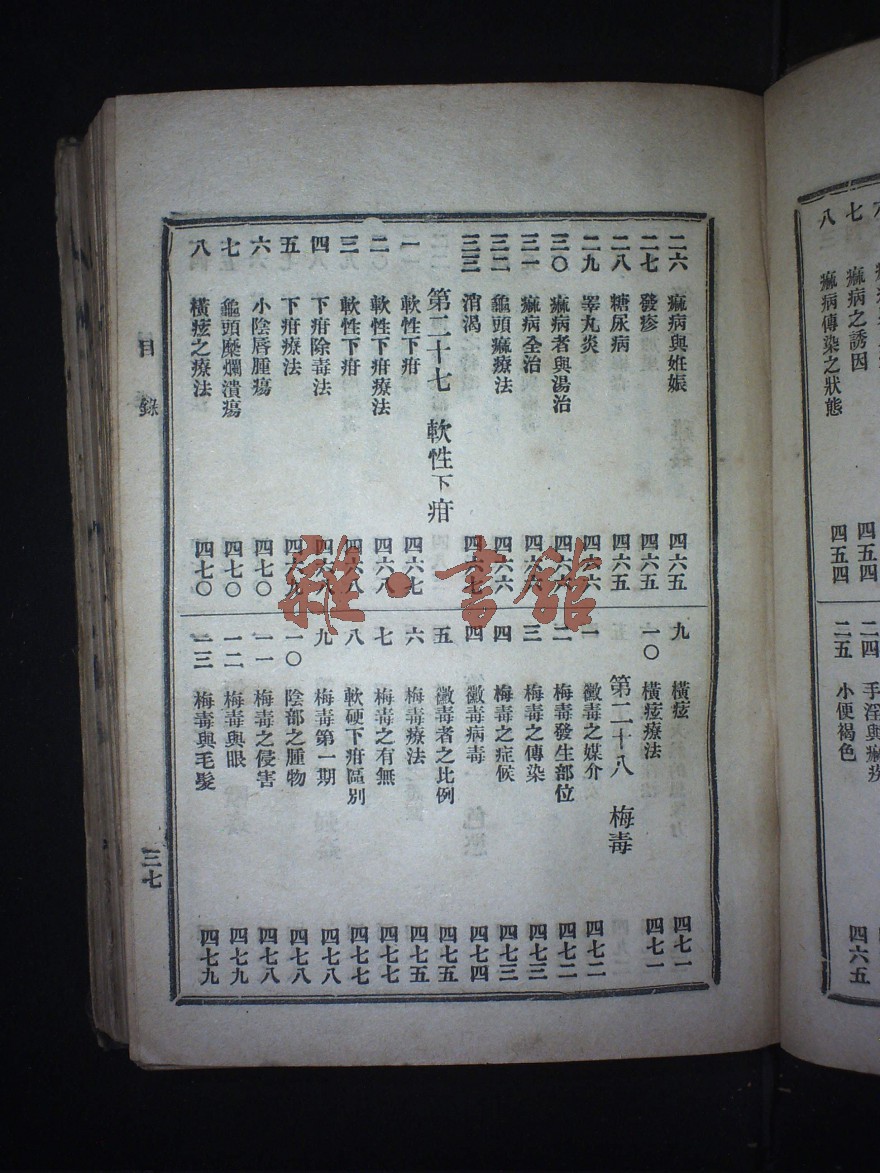 七 痲病之誘因 四五四
八 痲病傳染之狀態 四五四
二四
二五 小便褐色 四六五
二六 痲病與姙娠 四六五
二七 發疹 四六五
二八 糖尿病 四六五
二九 睾丸炎 四六六
三〇 痲病者與湯治 四六六
三一 痲病全治 四六六
三二 龜頭痲療法 四六六
三三 消渴 四六七
第二十七 軟性下疳
一 軟性下疳 四六七
二 軟性下疳療法 四六八
三 軟性下疳 四六八
四 下疳除毒法 四六八
五 下疳療法 四六九
六 小陰唇腫瘍 四七〇
七 龜頭糜爛潰瘍 四七〇
八 橫痃之療法 四七〇
九 橫痃 四七一
一〇 橫痃療法 四七一
第二十八 梅毒
一 黴毒之媒介 四七二
二 梅毒發生部位 四七二
三 梅毒之傳染 四七三
四 梅毒之症候 四七三
四 黴毒病毒 四七四
五 黴毒者之比例 四七五
六 梅毒療法 四七五
七 梅毒之有無 四七七
八 軟硬下疳區別 四七七
九 梅毒第一期 四七八
一〇 陰部之腫物 四七八
一一 梅毒之侵害 四七八
一二 梅毒與眼 四七九
一三 梅毒與毛髮 四七九
目錄
三七
雜·書館